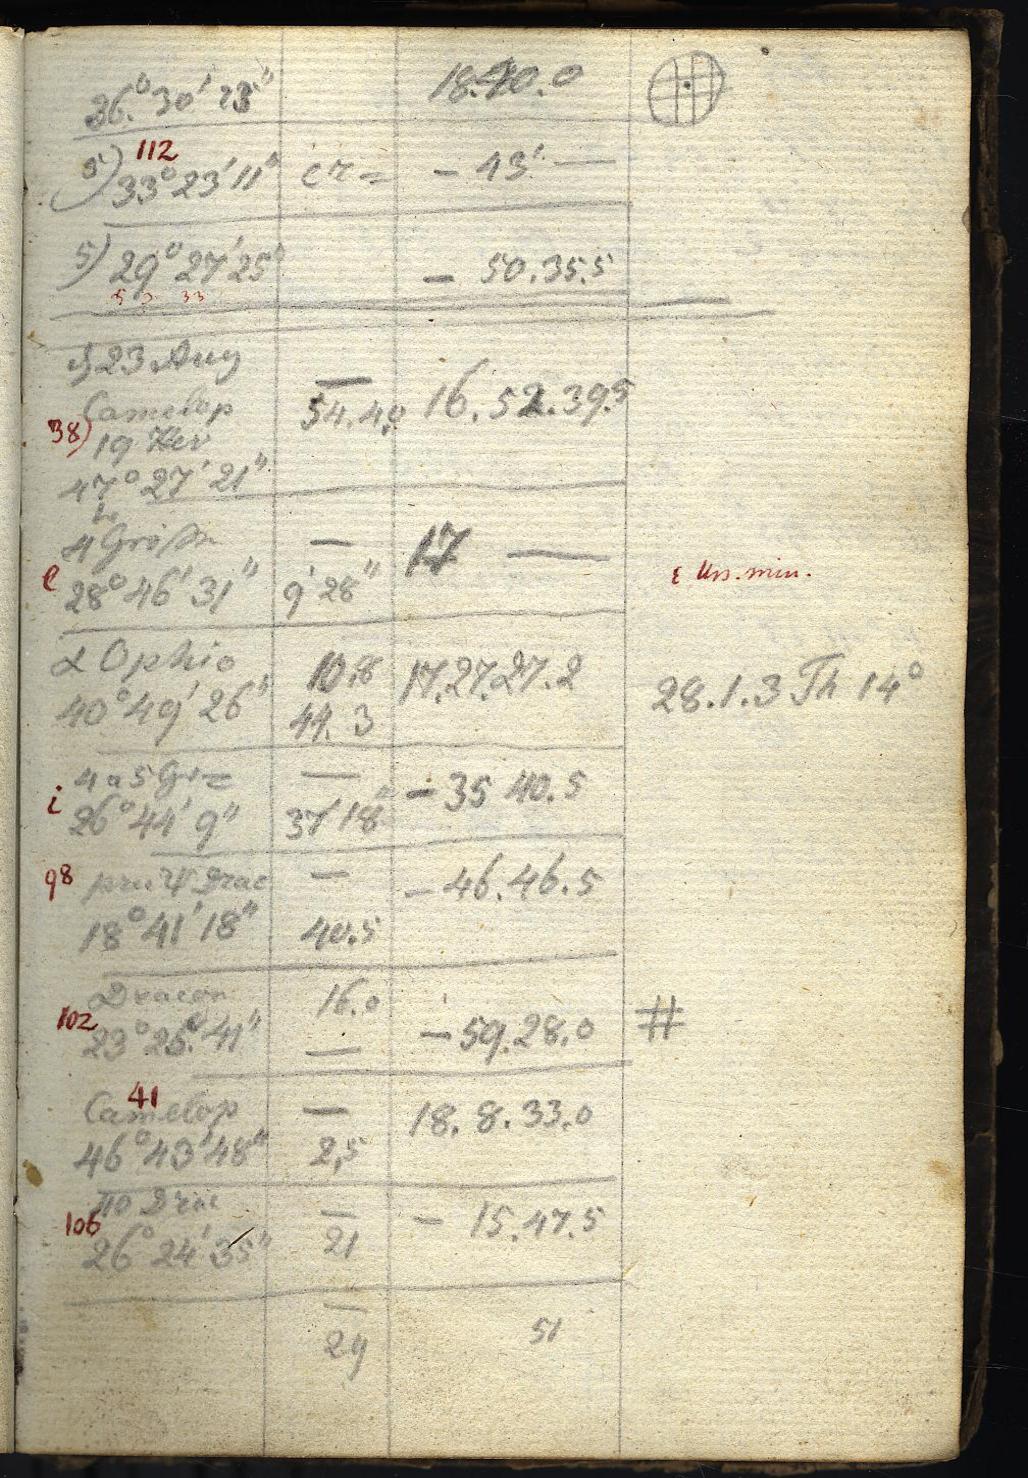 36.° 30' 23" 18.40.0
112
5) 33° 23' 11" cr = - 43' —
5) 29° 27' 25" - 50.35.5
23 Aug
Camelop — 16.52.39.5
38) 19 Hev 54.4.
47° 27' 21"
4 Größe — 17 —
e 28° 46' 31" 9' 28" ε Urs. min.
α Ophio 10.8 17.27.27.2
40° 49' 26" 44.3 28.1.3 Th 14°
4 a 5 Gr= — - 35 40.5
i 26° 44' 9" 37' 18"
98 ψ Drac — - 46.46.5
18° 41' 18" 40.5
Dracon 16.0
102 23° 26' 41" — - 59.28.0 #
41
Camelop — 18.8.33.0
46° 43' 48" 2,5
Drac —
106 26° 24' 35" 21 - 15.47.5
—
29 51